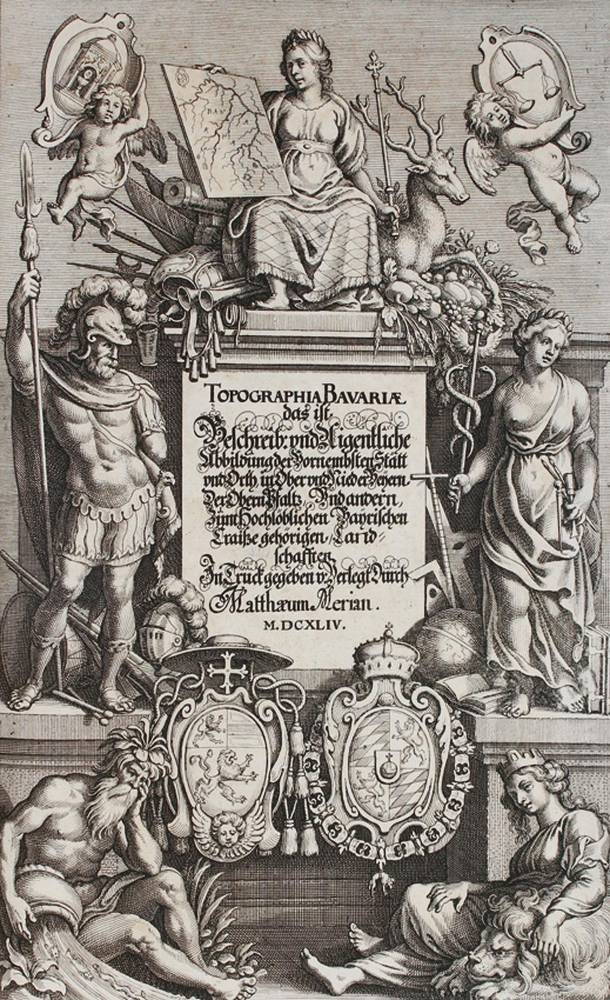 TOPOGRAPHIA BAVARIÆ
das ist
Beschreib: vnd Aigentliche
Abbildung der Vornembsten Stätt
vnd Orth, in Ober vnd Nieder Beyern,
Der Obern Pfaltz, Vnd andern,
Zum Hochlöblichen Bayrischen
Craiße gehörigen, Land-
schafften
In Truck gegeben v: Verlegt Durch
Matthæum Merian.
M.DCXLIV.